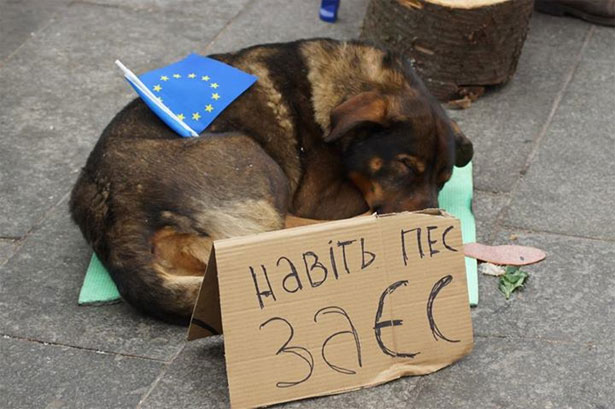 навіть пес
за єс